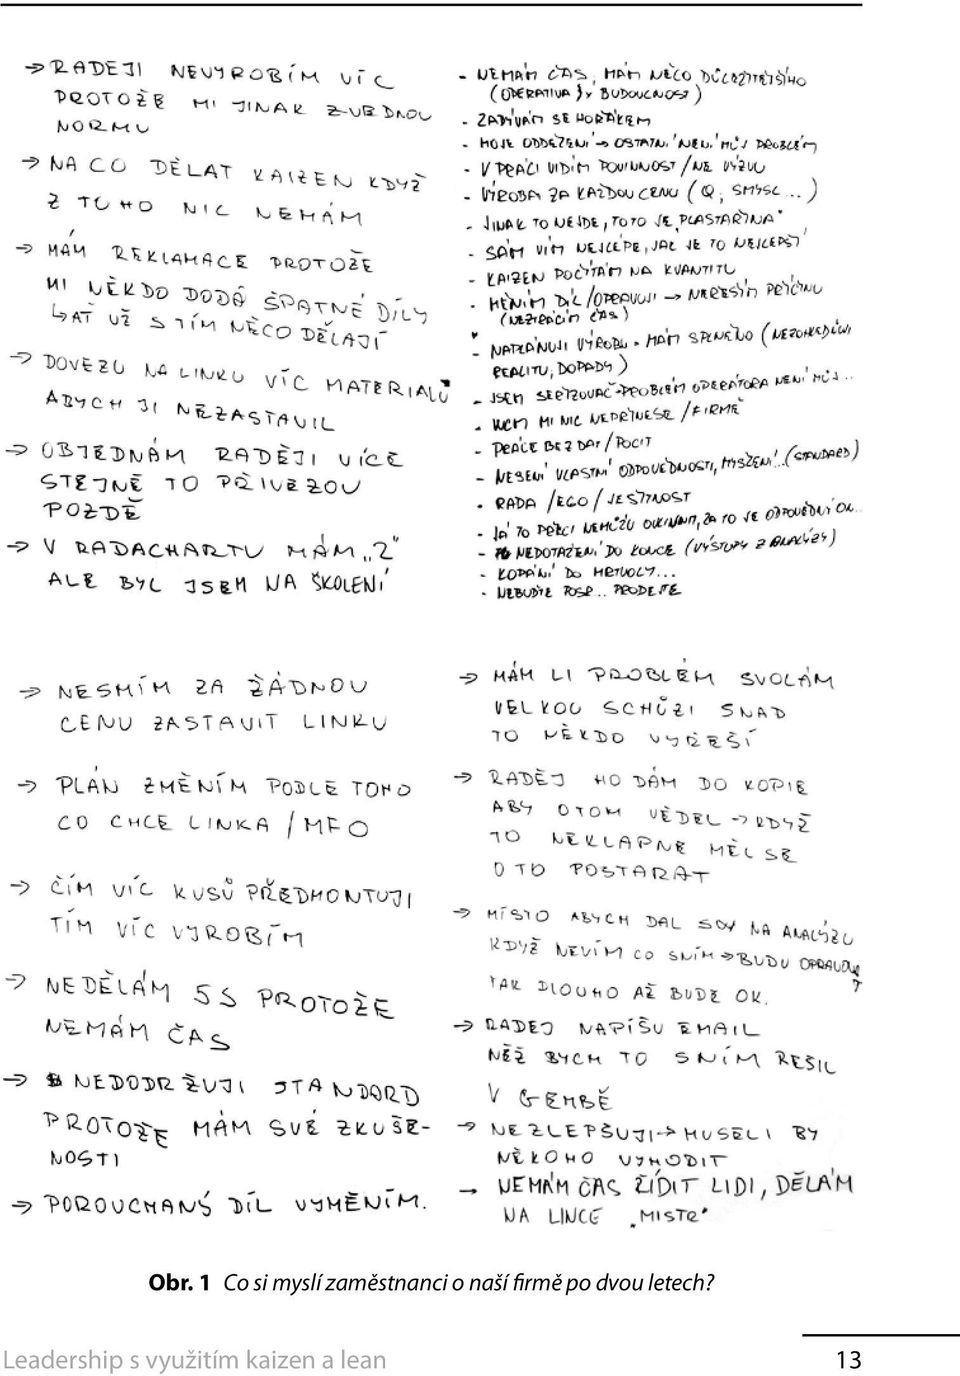 → RADĚJI NEVYROBÍM VÍC
PROTOŽE MI JINAK ZVEDNOU
NORMU
→ NA CO DĚLAT KAIZEN KDYŽ
Z TOHO NIC NEMÁM
→ MÁM REKLAMACE PROTOŽE
MI NĚKDO DODÁ ŠPATNÉ DÍLY
↳ AŤ UŽ S TÍM NĚCO DĚLAJÍ
→ DOVEZU NA LINKU VÍC MATERIALŮ
ABYCH JI NEZASTAVIL
→ OBJEDNÁM RADĚJI VÍCE
STEJNĚ TO PŘIVEZOU
POZDĚ
→ V RADACHARTU MÁM „2"
ALE BYL JSEM NA ŠKOLENÍ
- NEMÁM ČAS, MÁM NĚCO DŮLEŽITĚJŠÍHO
(OPERATIVA x BUDOUCNOST)
- ZABÝVÁM SE HOŘÁKEM
- MOJE ODDĚLENÍ → OSTATNÍ NENÍ MŮJ PROBLÉM
- V PRÁCI VIDÍM POVINNOST / NE VÝZVU
- VÝROBA ZA KAŽDOU CENU (Q, SMYSL ..)
- JINAK TO NEJDE, TOTO JE „PLASTAŘINA"
- SÁM VÍM NEJLÉPE, JAK JE TO NEJLEPŠÍ
- KAIZEN POČÍTÁM NA KVANTITU
- MĚNÍM DÍL / OPRAVUJI → NEŘEŠÍM PŘÍČINU
(NEZTRÁCÍM ČAS)
- NAPLÁNUJI VÝROBU - MÁM SPLNĚNO (NEZOHLEDŇUJI
REALITU, DOPADY)
- JSEM SEŘIZOVAČ - PROBLÉM OPERÁTORA NENÍ MŮJ...
- WCM MI NIC NEPŘINESE / FIRMĚ
- PRÁCE BEZ DAT / POCIT
- NESENÍ VLASTNÍ ODPOVĚDNOSTI, MYŠLENÍ...(STANDARD)
- RADA / EGO / JEŠITNOST
- JÁ TO PŘECI NEMŮŽU OVLIVNIT, ZA TO JE ODPOVĚDNÝ ON..
- NEDOTAŽENÍ DO KONCE (VÝSTUPY Z ANALÝZY)
- KOPÁNÍ DO METODY...
- NEBUDTE .. PRODEJTE
→ NESMÍM ZA ŽÁDNOU
CENU ZASTAVIT LINKU
→ PLÁN ZMĚNÍM PODLE TOHO
CO CHCE LINKA / MFO
→ ČÍM VÍC KUSŮ PŘEDMONTUJI
TÍM VÍC VYROBÍM
→ NEDĚLÁM 5S PROTOŽE
NEMÁM ČAS
→ NEDODRŽUJI STANDARD
PROTOŽE MÁM SVÉ ZKUŠE-
NOSTI
→ POROUCHANÝ DÍL VYMĚNÍM.
→ MÁM LI PROBLÉM SVOLÁM
VELKOU SCHŮZI SNAD
TO NĚKDO VYŘEŠÍ
→ RADĚJ HO DÁM DO KOPIE
ABY OTOM VĚDEL → KDYŽ
TO NEKLAPNE MĚL SE
O TO POSTARAT
→ MÍSTO ABYCH DAL SOV NA ANALÝZU
KDYŽ NEVÍM CO SNÍM → BUDU OPRAVOVAT
TAK DLOUHO AŽ BUDE OK.
→ RADEJ NAPÍŠU EMAIL
NĚŽ BYCH TO S NÍM ŘEŠIL
V GEMBĚ
→ NEZLEPŠUJI → MUSELI BY
NĚKOHO VYHODIT
→ NEMÁM ČAS ŘÍDIT LIDI, DĚLÁM
NA LINCE „MISTR"
Obr. 1 Co si myslí zaměstnanci o naší firmě po dvou letech?
Leadership s využitím kaizen a lean 13